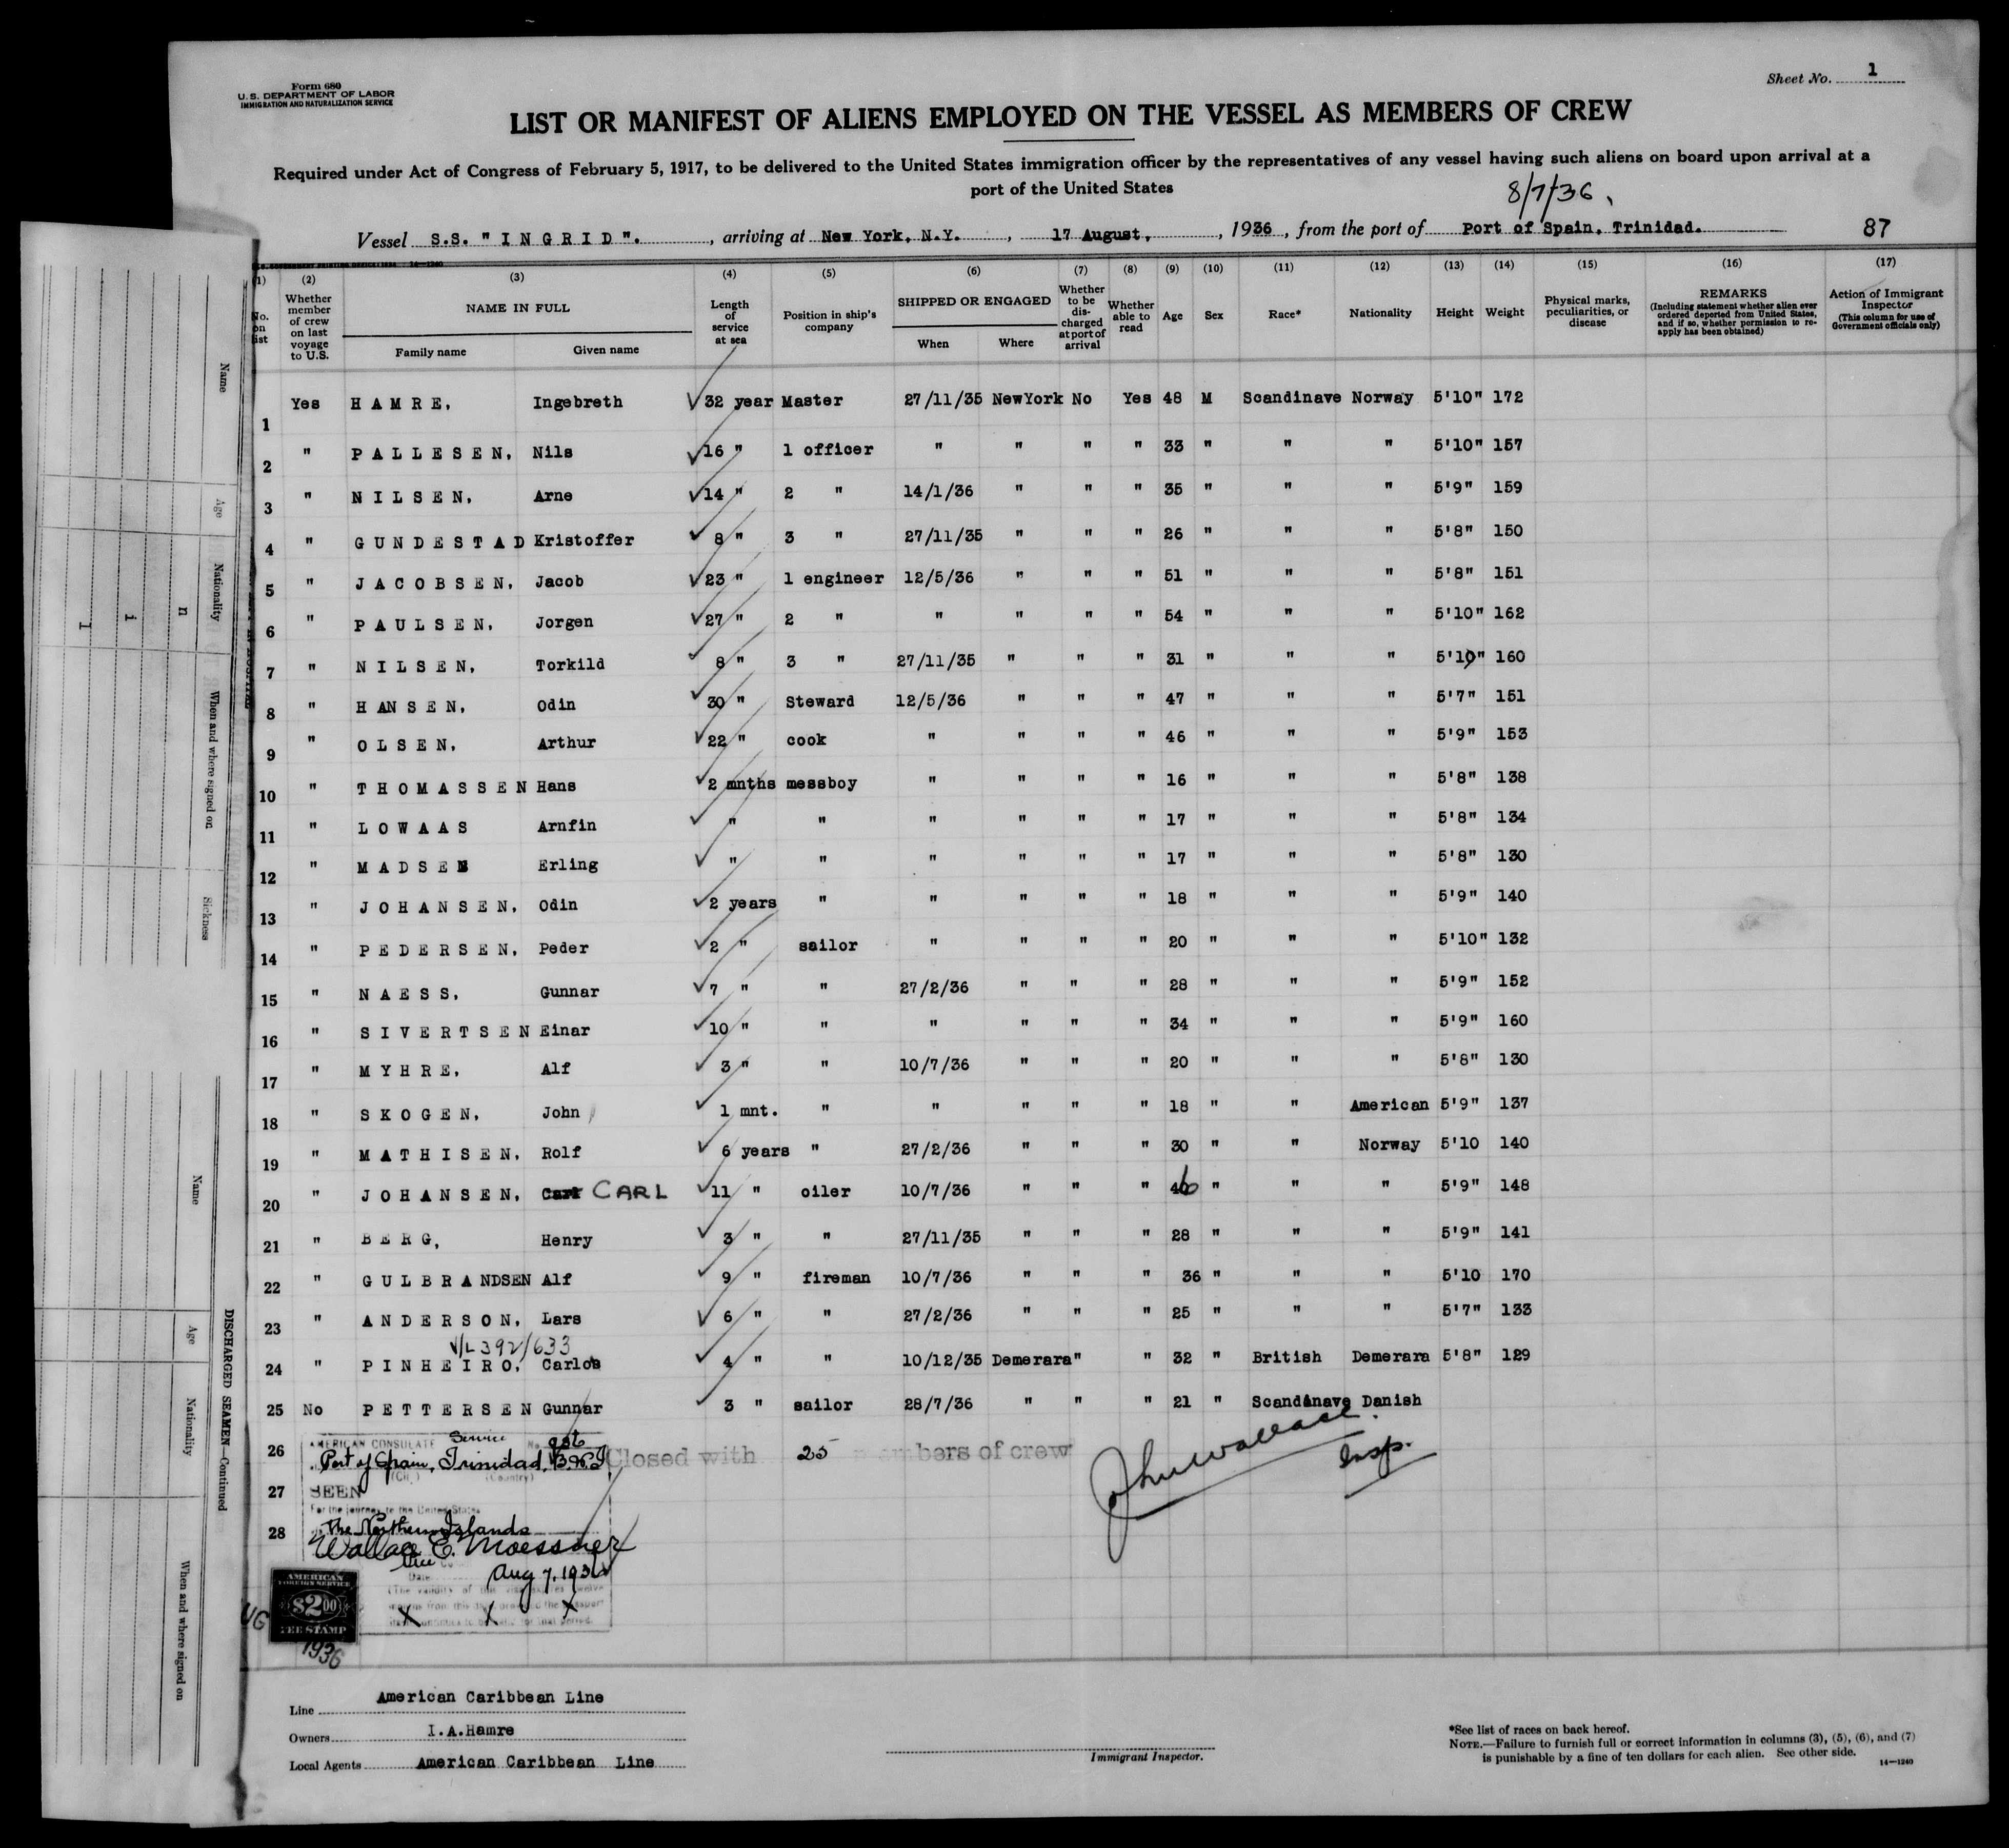 Form 680
U. S. DEPARTMENT OF LABOR
IMMIGRATION AND NATURALIZATION SERVICE
Sheet No. 1
LIST OR MANIFEST OF ALIENS EMPLOYED ON THE VESSEL AS MEMBERS OF CREW
Required under Act of Congress of February 5, 1917, to be delivered to the United States immigration officer by the representatives of any vessel having such aliens on board upon arrival at a
port of the United States
8/7/36.
Vessel S.S. "INGRID". , arriving at New York, N.Y. , 17 August, , 1936 , from the port of Port of Spain, Trinidad. 87
(1) (2) (3) (4) (5) (6) (7) (8) (9) (10) (11) (12) (13) (14) (15) (16) (17)
No. on list Whether member of crew on last voyage to U.S. NAME IN FULL Family name Given name Length of service at sea Position in ship's company SHIPPED OR ENGAGED When Where Whether to be discharged at port of arrival Whether able to read Age Sex Race* Nationality Height Weight Physical marks, peculiarities, or disease REMARKS (Including statement whether alien ever ordered deported from United States, and if so, whether permission to re-apply has been obtained) Action of Immigrant Inspector (This column for use of Government officials only)
1 Yes HAMRE, Ingebreth 32 year Master 27/11/35 NewYork No Yes 48 M Scandinave Norway 5'10" 172
2 " PALLESEN, Nils 16 " 1 officer " " " " 33 " " " 5'10" 157
3 " NILSEN, Arne 14 " 2 " 14/1/36 " " " 35 " " " 5'9" 159
4 " GUNDESTAD Kristoffer 8 " 3 " 27/11/35 " " " 26 " " " 5'8" 150
5 " JACOBSEN, Jacob 23 " 1 engineer 12/5/36 " " " 51 " " " 5'8" 151
6 " PAULSEN, Jorgen 27 " 2 " " " " " 54 " " " 5'10" 162
7 " NILSEN, Torkild 8 " 3 " 27/11/35 " " " 31 " " " 5'10" 160
8 " HANSEN, Odin 30 " Steward 12/5/36 " " " 47 " " " 5'7" 151
9 " OLSEN, Arthur 22 " cook " " " " 46 " " " 5'9" 153
10 " THOMASSEN Hans 2 mnths messboy " " " " 16 " " " 5'8" 138
11 " LOWAAS Arnfin " " " " " " 17 " " " 5'8" 134
12 " MADSEN Erling " " " " " " 17 " " " 5'8" 130
13 " JOHANSEN, Odin 2 years " " " " " 18 " " " 5'9" 140
14 " PEDERSEN, Peder 2 " sailor " " " " 20 " " " 5'10" 132
15 " NAESS, Gunnar 7 " " 27/2/36 " " " 28 " " " 5'9" 152
16 " SIVERTSEN Einar 10 " " " " " " 34 " " " 5'9" 160
17 " MYHRE, Alf 3 " " 10/7/36 " " " 20 " " " 5'8" 130
18 " SKOGEN, John 1 mnt. " " " " " 18 " " American 5'9" 137
19 " MATHISEN, Rolf 6 years " 27/2/36 " " " 30 " " Norway 5'10 140
20 " JOHANSEN, CARL 11 " oiler 10/7/36 " " " 46 " " " 5'9" 148
21 " BERG, Henry 3 " " 27/11/35 " " " 28 " " " 5'9" 141
22 " GULBRANDSEN Alf 9 " fireman 10/7/36 " " " 36 " " " 5'10 170
23 " ANDERSON, Lars 6 " " 27/2/36 " " " 25 " " " 5'7" 133
V/L 392/633
24 " PINHEIRO, Carlos 4 " " 10/12/35 Demerara " " 32 " British Demerara 5'8" 129
25 No PETTERSEN Gunnar 3 " sailor 28/7/36 " " " 21 " Scandinave Danish
26 AMERICAN CONSULATE Service No.
Port of Spain, Trinidad, B.W.I. Closed with 25 members of crew John Wallace Insp.
(Country)
27 SEEN
For the journey to the United States
28 The Northern Islands
Wallace E. Moessner
Vice Co
Date Aug 7, 1936
(The validity of this visa expires twelve
months from this date provided the passport
continues to be valid for that period.
X X X
AMERICAN
FOREIGN SERVICE
$2.00
FEE STAMP
1936
Line American Caribbean Line
Owners I.A.Hamre
Local Agents American Caribbean Line
Immigrant Inspector.
*See list of races on back hereof.
NOTE.—Failure to furnish full or correct information in columns (3), (5), (6), and (7)
is punishable by a fine of ten dollars for each alien. See other side.
14—1240
Name
Age
Nationality
When and where signed on
Sickness
n
i
l
Name
Age
Nationality
When and where signed on
DISCHARGED SEAMEN—Continued